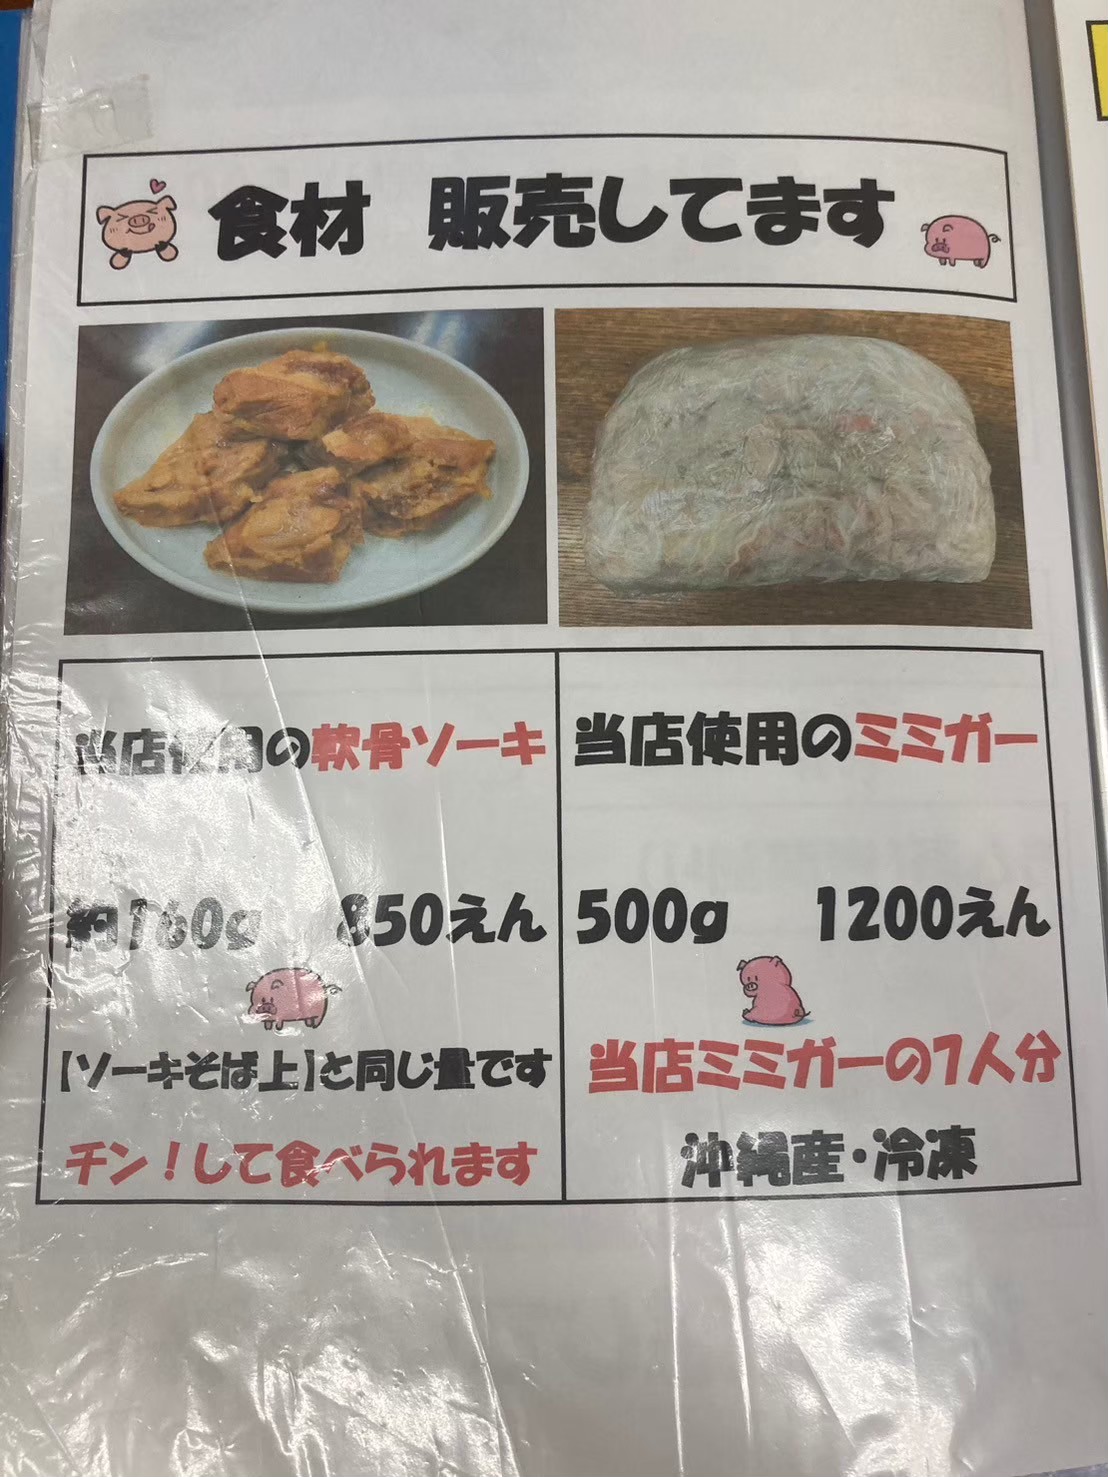 食材 販売してます
当店使用の軟骨ソーキ
約160g 850えん
【ソーキそば上】と同じ量です
チン！して食べられます
当店使用のミミガー
500g 1200えん
当店ミミガーの7人分
沖縄産・冷凍